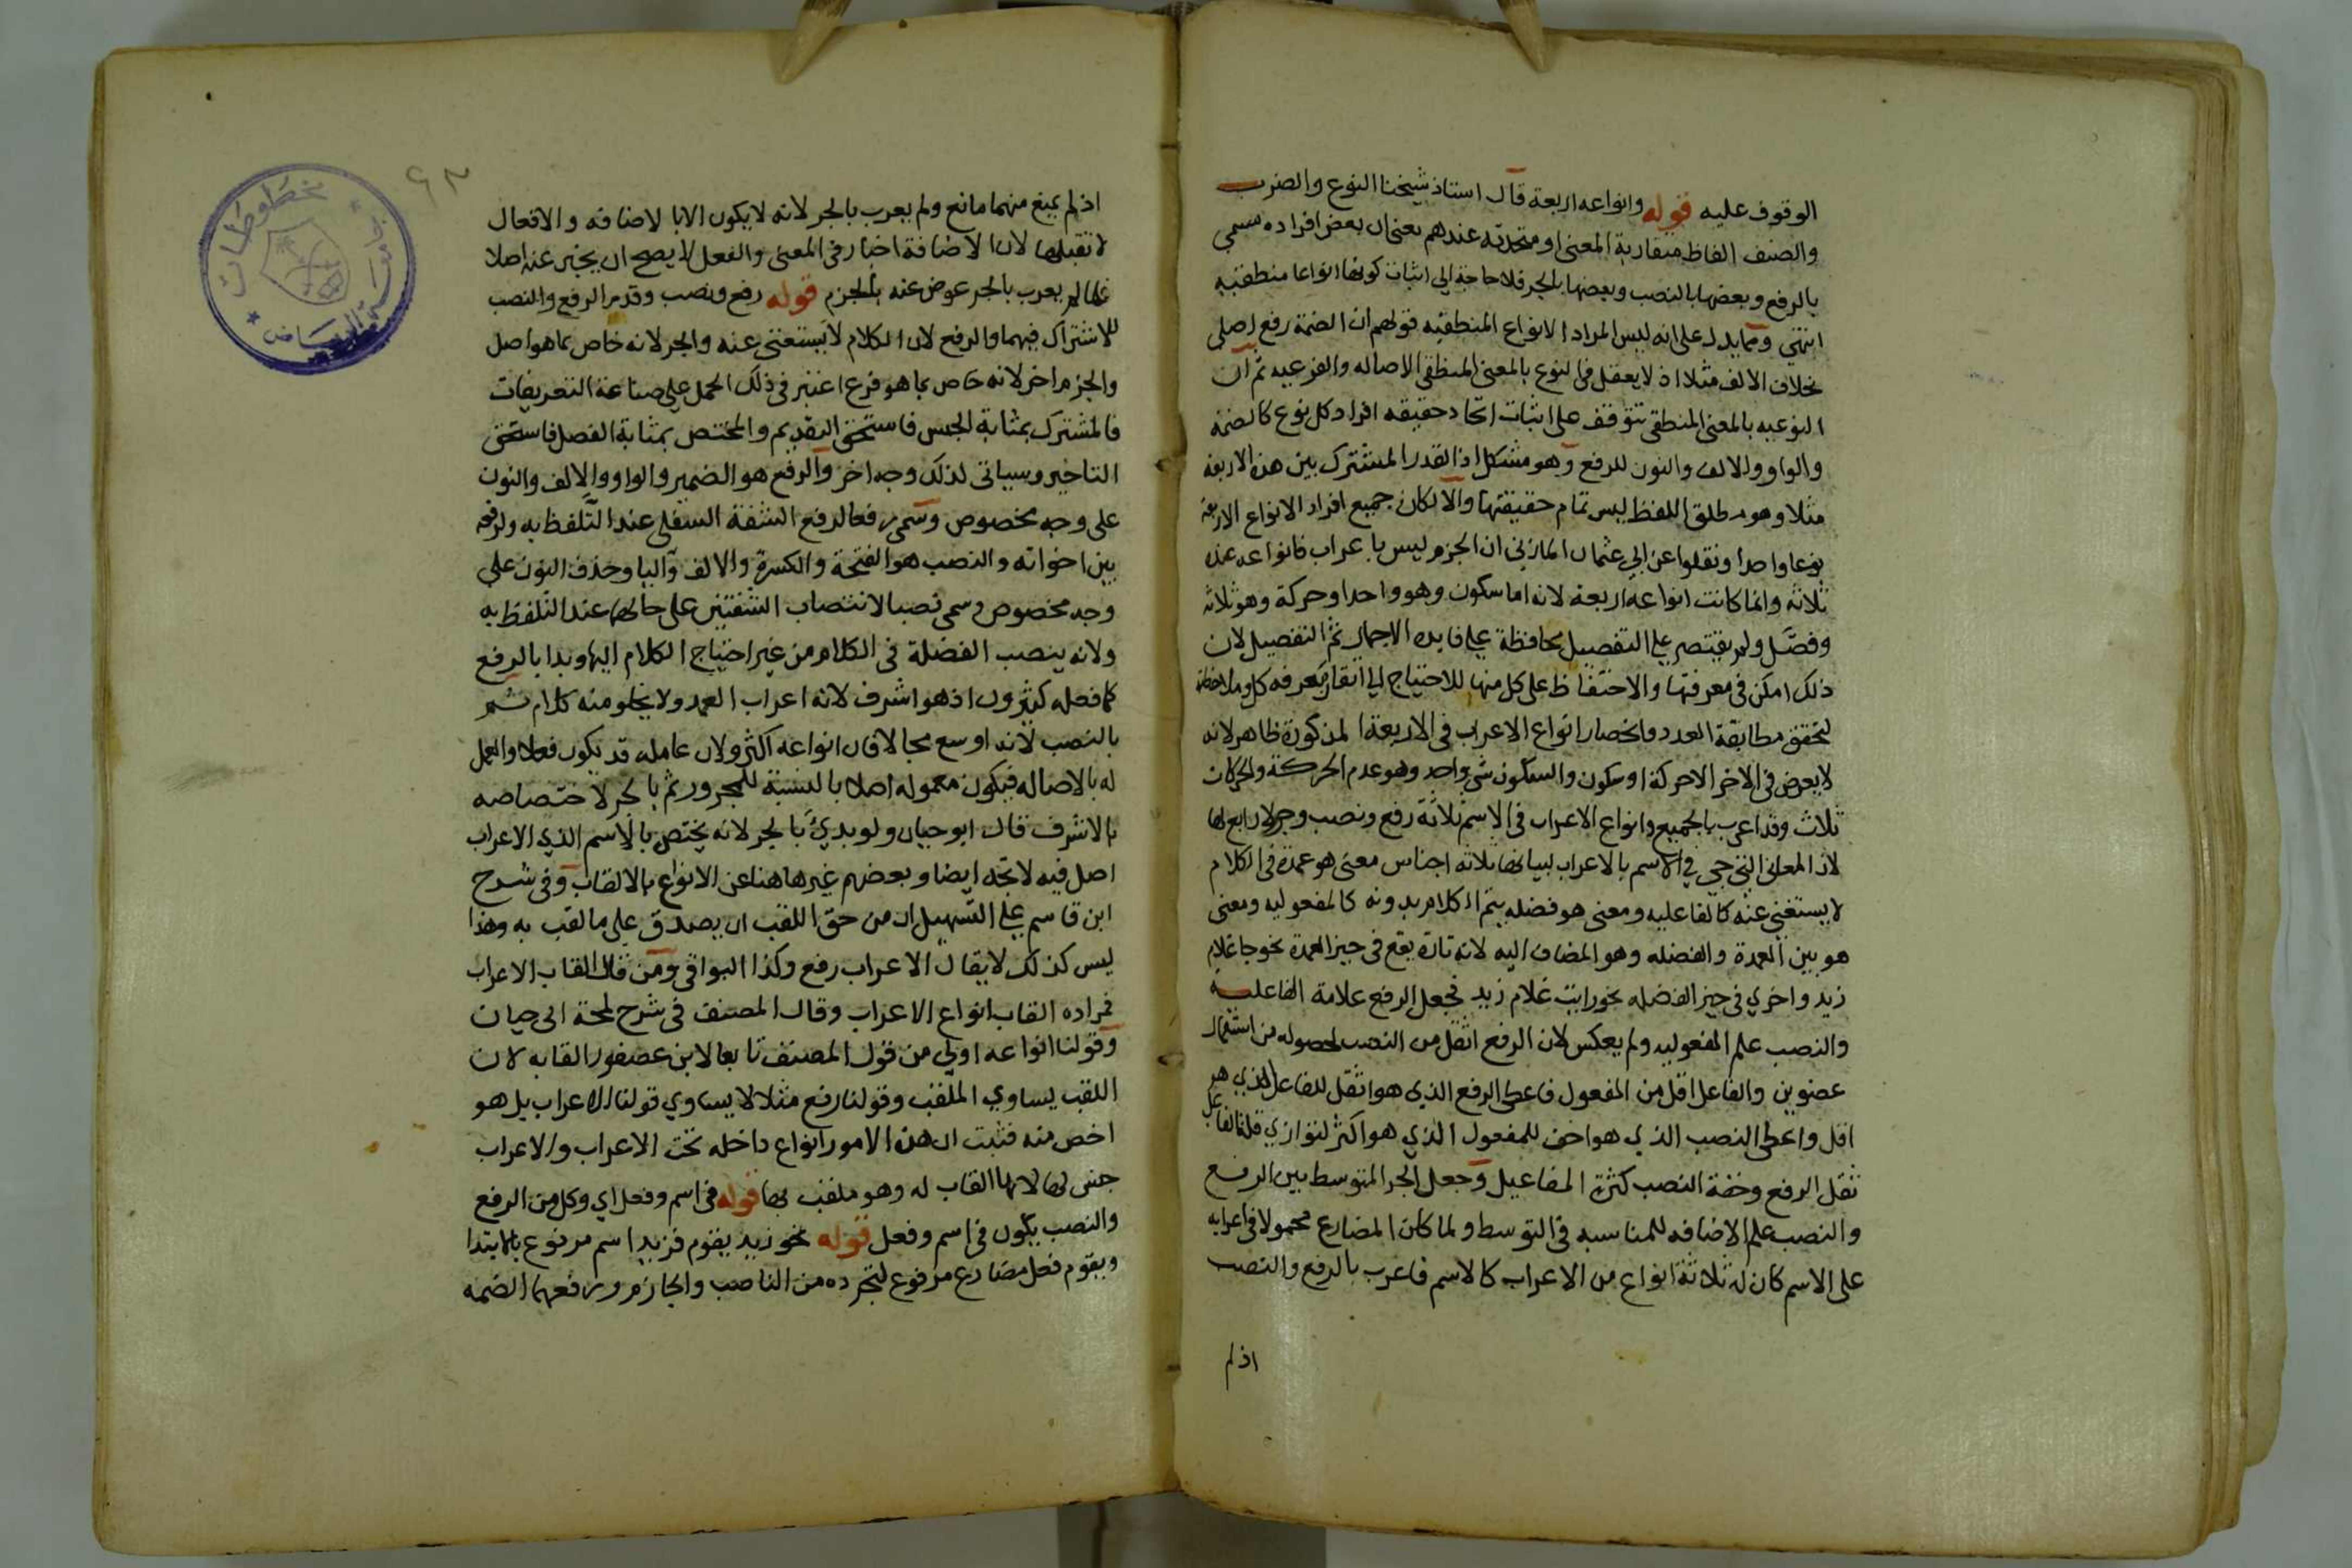 الوقوف عليه قوله وانواعه اربعة قال استاذ شيخنا النوع والضرب
والصنف الفاظ متقاربة المعنى او متحدته عندهم بمعنى ان بعض افراده سمى
بالرفع وبعضها بالنصب وبعضها بالجر فلا حاجة الى اثبات كونها انواعا منطقيه
انتهى ومما يدل على انه ليس المراد الانواع المنطقيه قولهم ان الضمة رفع اصلي
بخلاف الالف مثلا اذ لا يعقل في النوع بالمعنى المنطقى الاصاله والفرعيه ثم ان
النوعيه بالمعنى المنطقى تتوقف على اثبات اتحاد حقيقه افراد كل نوع كالضمة
والواو والالف والنون للرفع وهو مشكل اذ القدر المشترك بين هذه الاربعة
مثلا وهو مطلق اللفظ ليس تمام حقيقتها والا لكان جميع افراد الانواع الاربعة
نوعا واحدا ونقلوا عن ابي عثمان المازني ان الجزم ليس باعراب فانواعه عنده
ثلاثة وانما كانت انواعه اربعة لانه اما سكون وهو واحد او حركة وهو ثلاثة
وفصَّل ولم يقتصر على التفصيل محافظة على فايدة الاجمال ثم التفصيل لان
ذلك امكن في معرفتها والاحتفاظ على كل منها للاحتياج الى اتقان معرفه كل وملاحظة
لتحقق مطابقة العدد وانحصار انواع الاعراب في الاربعة المذكورة ظاهر لانه
لا يعرض في الاخر الا حركة او سكون والسكون شي واحد وهو عدم الحركة والحركات
ثلاث وقد اعرب بالجميع وانواع الاعراب في الاسم ثلاثة رفع ونصب وجر لا رابع لها
لان المعاني التي جي في الاسم بالاعراب لبيانها ثلاثة اجناس معنى هو عمدة في الكلام
لا يستغني عنه كالفاعليه ومعنى هو فضله يتم الكلام بدونه كالمفعوليه ومعنى
هو بين العمدة والفضله وهو المضاف اليه لانه تارة يقع في حيز العمدة نحو جا غلام
زيد واخري في حيز الفضله نحو رايت غلام زيد فجعل الرفع علامة الفاعليه
والنصب علم المفعوليه ولم يعكس لان الرفع اثقل من النصب لحصوله من استعمال
عضوين والفاعل اقل من المفعول فاعطى الرفع الذي هو اثقل للفاعل الذي هو
اقل واعطى النصب الذي هو اخف للمفعول الذي هو اكثر لتوازي قلة الفاعل
ثقل الرفع وخفة النصب كثرة المفاعيل وجعل الجر المتوسط بين الرفع
والنصب علم الاضافه للمناسبه في التوسط ولما كان المضارع محمولا في اعرابه
على الاسم كان له ثلاثة انواع من الاعراب كالاسم فاعرب بالرفع والنصب
اذ لم
٩٣
اذ لم يمنع منهما مانع ولم يعرب بالجر لانه لا يكون الا بالاضافه والافعال
لا تقبلها لان الاضافة اخبار في المعنى والفعل لا يصح ان يخبر عنه اصلا
فلما لم يعرب بالجر عوض عنه بالجزم قوله رفع ونصب وقدم الرفع والنصب
للاشتراك فيهما والرفع لان الكلام لا يستغنى عنه والجر لانه خاص بما هو اصل
والجزم اخر لانه خاص بما هو فرع اعتبر في ذلك الحمل على صناعة التعريفات
فالمشترك بمثابة الجنس فاستحق التقديم والمختص بمثابة الفصل فاستحق
التاخير وسياتى لذلك وجه اخر والرفع هو الضمير والواو والالف والنون
على وجه مخصوص وسمى رفعا لرفع الشفة السفلى عند التلفظ به ولرفعه
بين اخواته والنصب هو الفتحة والكسرة والالف واليا وحذف النون على
وجه مخصوص وسمى نصبا لانتصاب الشفتين على حالهما عند التلفظ به
ولانه ينصب الفضلة في الكلام من غير احتياج الكلام اليها وبدا بالرفع
كما فعله كثيرون اذ هو اشرف لانه اعراب العمد ولا يخلو منه كلام ثم
بالنصب لانه اوسع مجالا فان انواعه اكثر ولان عامله قد يكون فعلا والعمل
له بالاصاله فيكون معموله اصلا بالنسبة للمجرور ثم بالجر لاختصاصه
بالاشرف قال ابو حيان ولو بدئ بالجر لانه يختص بالاسم الذي الاعراب
اصل فيه لاتجه ايضا وبعضهم غيرها هنا عن الانواع بالالقاب وفي شرح
ابن قاسم على التسهيل ان من حق اللقب ان يصدق على ما لقب به وهذا
ليس كذلك لا يقال الاعراب رفع وكذا البواقي ومن قال القاب الاعراب
فمراده القاب انواع الاعراب وقال المصنف في شرح لمحة ابى حيان
وقولنا انواعه اولى من قول المصنف تابعا لابن عصفور القابه لان
اللقب يساوي الملقب وقولنا رفع مثلا لا يساوي قولنا الاعراب بل هو
اخص منه فثبت ان هذه الامور انواع داخله تحت الاعراب والاعراب
جنس لها لا انها القاب له وهو ملقب بها قوله في اسم وفعل اي وكل من الرفع
والنصب يكون في اسم وفعل قوله نحو زيد يقوم فزيد اسم مرفوع بالابتدا
ويقوم فعل مضارع مرفوع لتجرده من الناصب والجازم ورفعهما الضمه